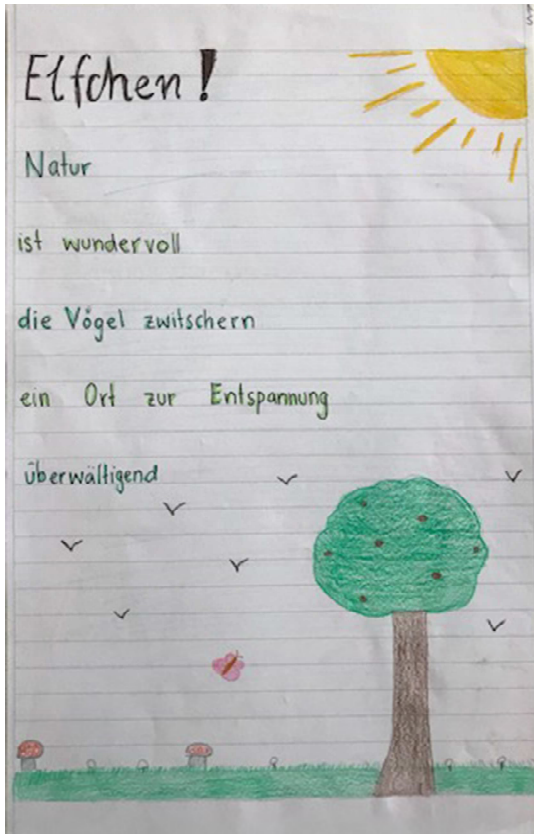 Elfchen!
Natur
ist wundervoll
die Vögel zwitschern
ein Ort zur Entspannung
überwältigend